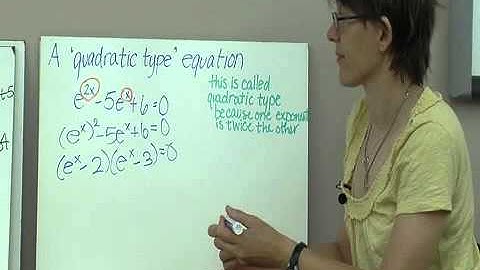 A "quadratic type" equation
e^{2x} - 5e^{x} + 6 = 0
(e^x)^2 - 5e^x + 6 = 0
(e^x - 2)(e^x - 3) = 0
this is called
quadratic type
because one exponent
is twice the other